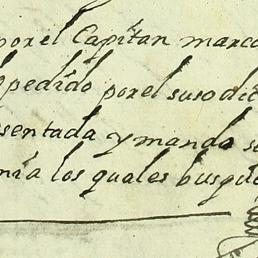 por el Capitan marco
pedido por el susodic
sentada y manda se
nia los quales busque